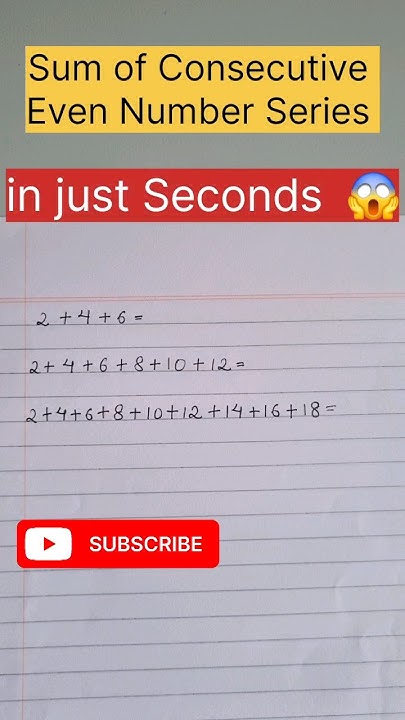 Sum of Consecutive
Even Number Series
in just Seconds 😱
2+4+6=
2+4+6+8+10+12=
2+4+6+8+10+12+14+16+18=
SUBSCRIBE